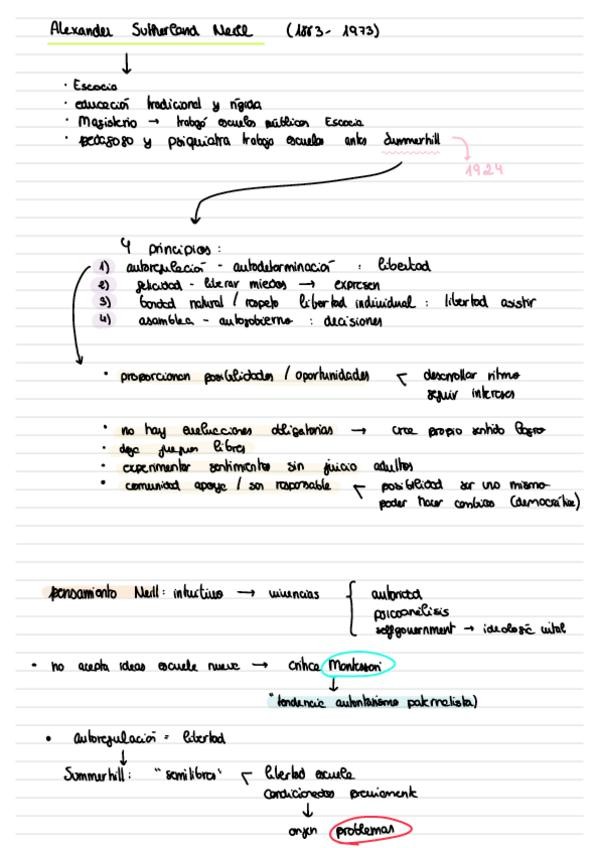 Alexander Sutherland Neill (1883 - 1973)
↓
· Escocia
· educación tradicional y rígida
· Magisterio → trabajó escuelas públicas Escocia
· pedagogo y psiquiatra trabajo escuelas antes Summerhill
1924
4 principios:
1) autoregulación - autodeterminación : libertad
2) felicidad - liberar miedos → expresen
3) bondad natural / respeto libertad individual : libertad asistir
4) asamblea - autogobierno : decisiones
· proporcionan posibilidades / oportunidades < desarrollar ritmo
seguir intereses
· no hay evaluaciones obligatorias → cree propio sentido logro
· deja jueguen libres
· experimentar sentimientos sin juicio adultos
· comunidad apoye / son responsable < posibilidad ser uno mismo
poder hacer cambios (democrática)
pensamiento Neill: intuitivo → vivencias { autoridad
psicoanálisis
selfgovernment → ideología vital
· no acepta ideas escuela nueva → crítica Montessori
↓
"tendencia autoritarismo paternalista)
· autoregulación = libertad
↓
Summerhill: "semilibres" < libertad escuela
condicionados previamente
↓
origen problemas